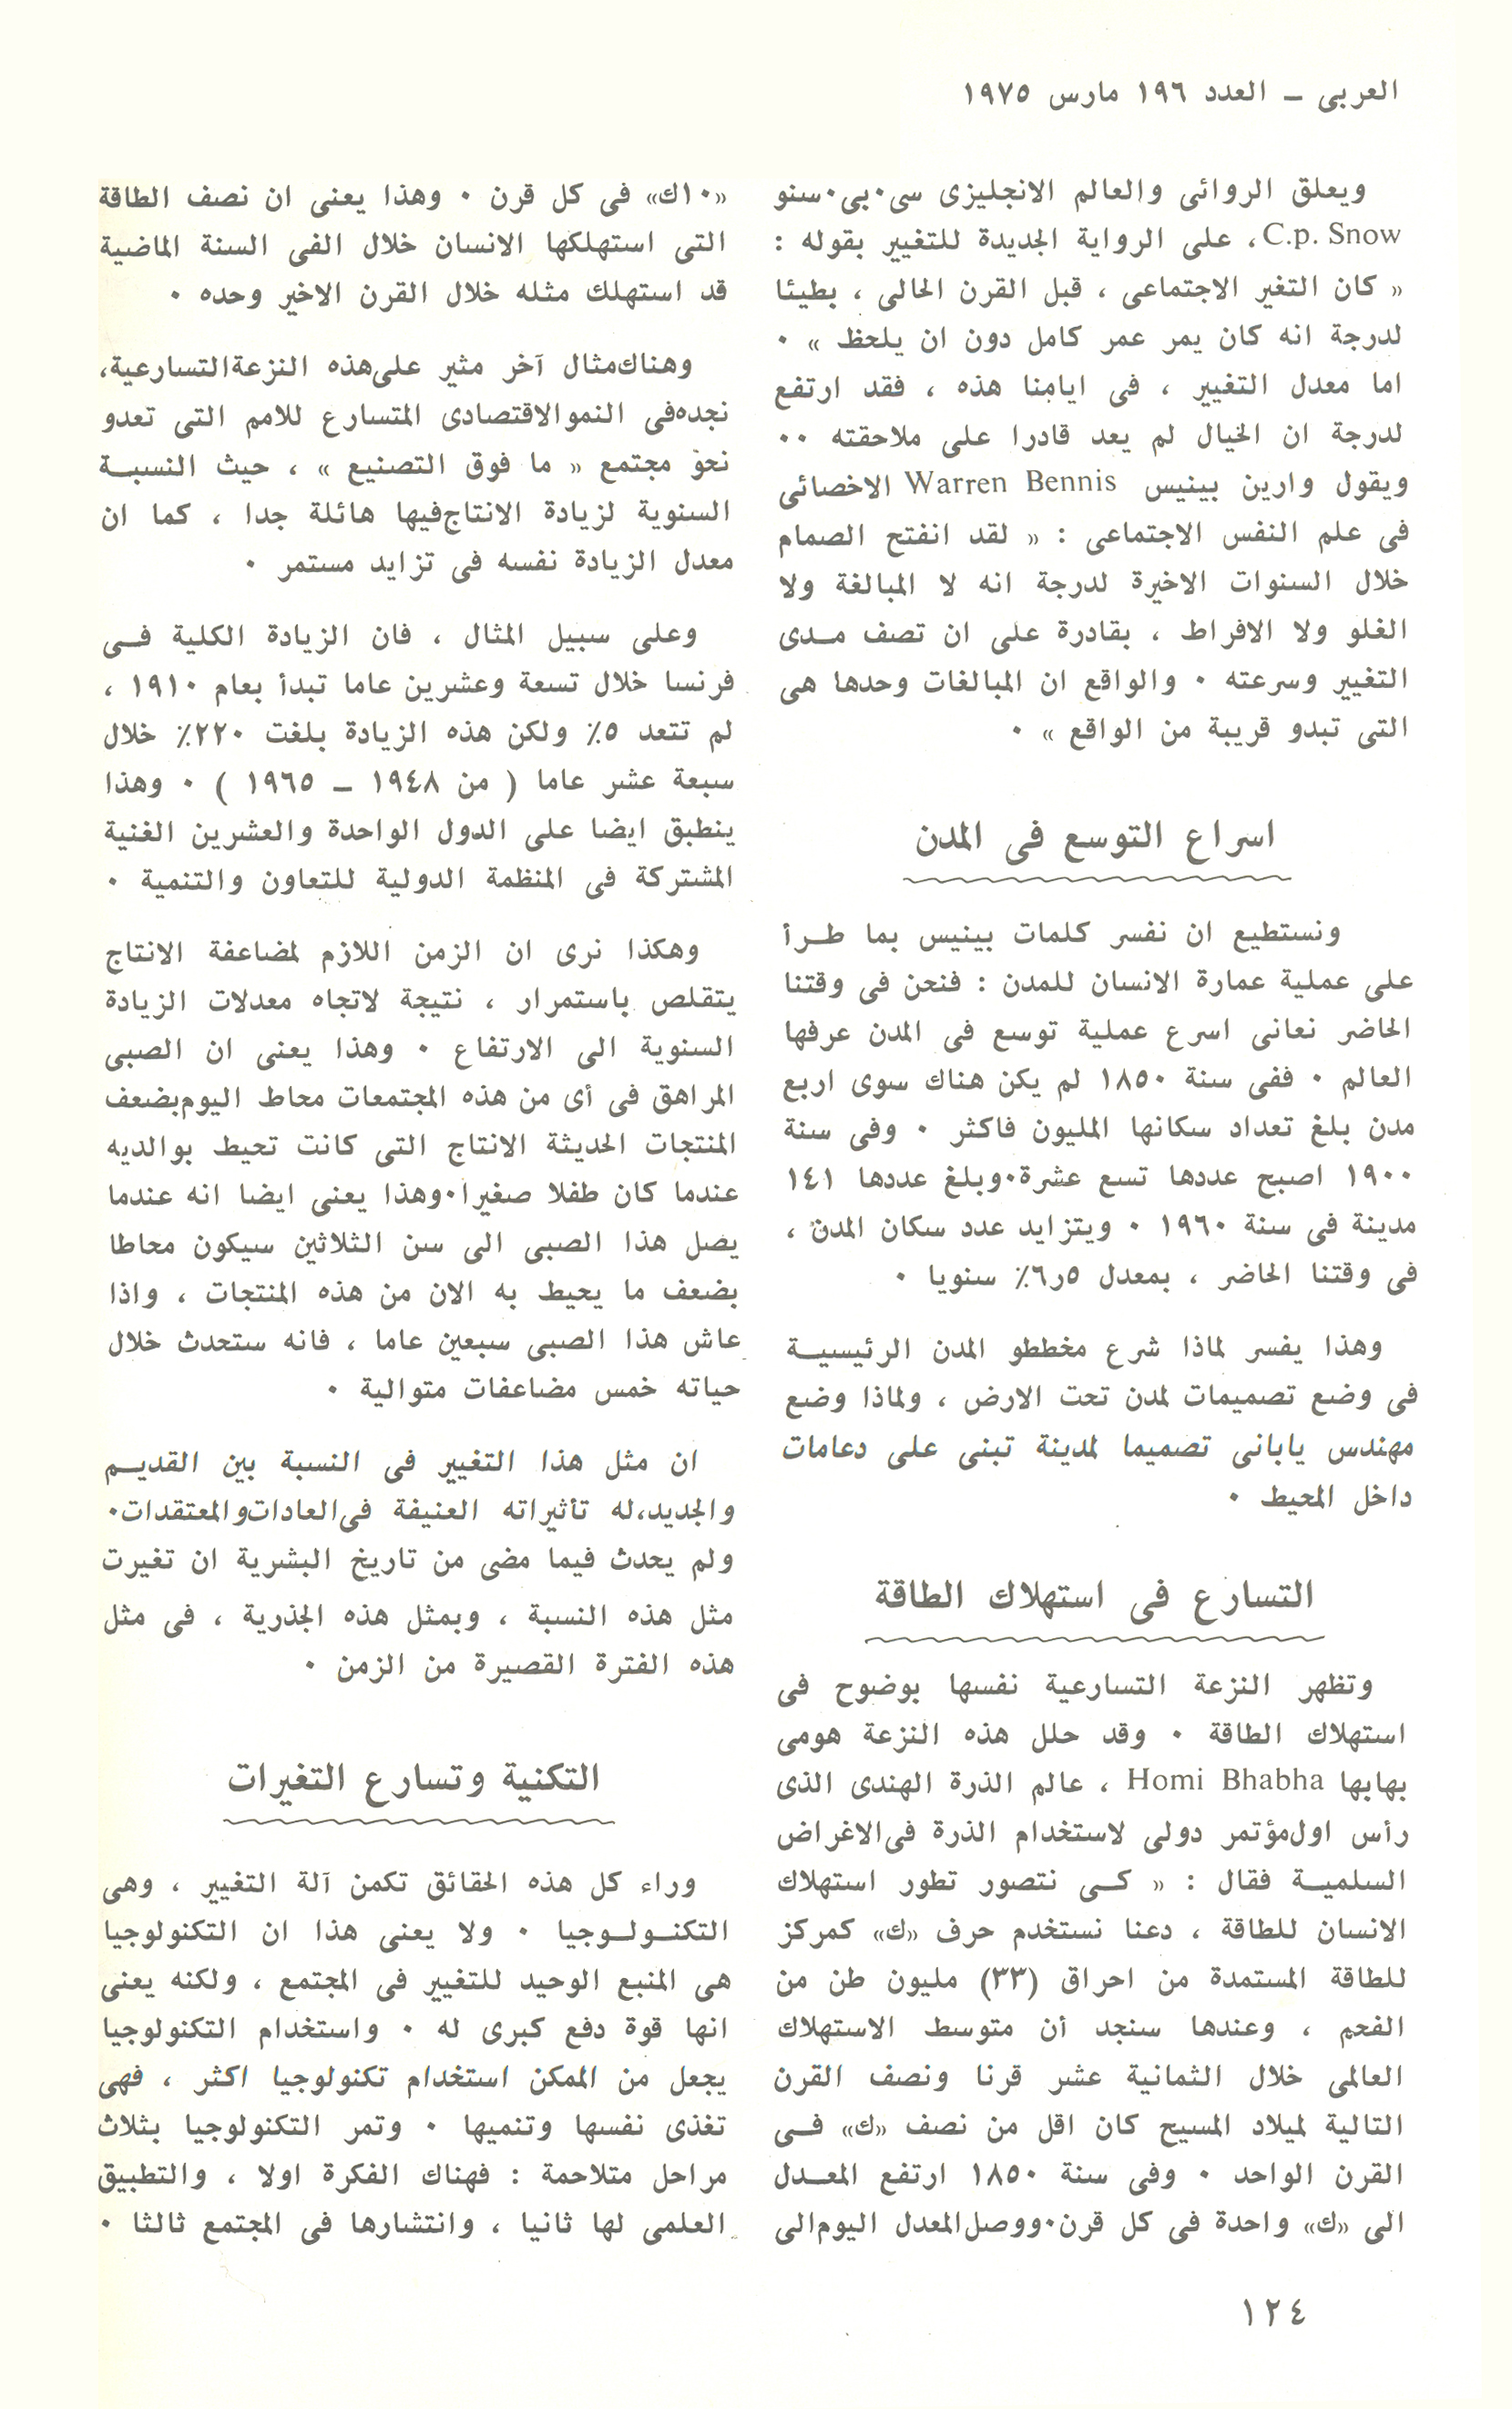 العربى – العدد ١٩٦ مارس ١٩٧٥
ويعلق الروائى والعالم الانجليزى سى٠بى٠سنو
C.p. Snow، على الرواية الجديدة للتغيير بقوله :
« كان التغير الاجتماعى ، قبل القرن الحالى ، بطيئا
لدرجة انه كان يمر عمر كامل دون ان يلحظ » ٠
اما معدل التغيير ، فى ايامنا هذه ، فقد ارتفع
لدرجة ان الخيال لم يعد قادرا على ملاحقته ٠٠
ويقول وارين بينيس Warren Bennis الاخصائى
فى علم النفس الاجتماعى : « لقد انفتح الصمام
خلال السنوات الاخيرة لدرجة انه لا المبالغة ولا
الغلو ولا الافراط ، بقادرة على ان تصف مـدى
التغيير وسرعته ٠ والواقع ان المبالغات وحدها هى
التى تبدو قريبة من الواقع » ٠
اسراع التوسع فى المدن
ونستطيع ان نفسر كلمات بينيس بما طـرأ
على عملية عمارة الانسان للمدن : فنحن فى وقتنا
الحاضر نعانى اسرع عملية توسع فى المدن عرفها
العالم ٠ ففى سنة ١٨٥٠ لم يكن هناك سوى اربع
مدن بلغ تعداد سكانها المليون فاكثر ٠ وفى سنة
١٩٠٠ اصبح عددها تسع عشرة٠وبلغ عددها ١٤١
مدينة فى سنة ١٩٦٠ ٠ ويتزايد عدد سكان المدن ،
فى وقتنا الحاضر ، بمعدل ٥ر٦٪ سنويا ٠
وهذا يفسر لماذا شرع مخططو المدن الرئيسيـة
فى وضع تصميمات لمدن تحت الارض ، ولماذا وضع
مهندس يابانى تصميما لمدينة تبنى على دعامات
داخل المحيط ٠
التسارع فى استهلاك الطاقة
وتظهر النزعة التسارعية نفسها بوضوح فى
استهلاك الطاقة ٠ وقد حلل هذه النزعة هومى
بهابها Homi Bhabha ، عالم الذرة الهندى الذى
رأس اول مؤتمر دولى لاستخدام الذرة فى الاغراض
السلميـة فقال : « كـى نتصور تطور استهلاك
الانسان للطاقة ، دعنا نستخدم حرف «ك» كمركز
للطاقة المستمدة من احراق (٣٣) مليون طن من
الفحم ، وعندها سنجد أن متوسط الاستهلاك
العالمى خلال الثمانية عشر قرنا ونصف القرن
التالية لميلاد المسيح كان اقل من نصف «ك» فـى
القرن الواحد ٠ وفى سنة ١٨٥٠ ارتفع المعـدل
الى «ك» واحدة فى كل قرن٠ووصل المعدل اليوم الى
«١٠ك» فى كل قرن ٠ وهذا يعنى ان نصف الطاقة
التى استهلكها الانسان خلال الفى السنة الماضية
قد استهلك مثله خلال القرن الاخير وحده ٠
وهناك مثال آخر مثير على هذه النزعة التسارعية،
نجده فى النمو الاقتصادى المتسارع للامم التى تعدو
نحو مجتمع « ما فوق التصنيع » ، حيث النسبـة
السنوية لزيادة الانتاج فيها هائلة جدا ، كما ان
معدل الزيادة نفسه فى تزايد مستمر ٠
وعلى سبيل المثال ، فان الزيادة الكلية فـى
فرنسا خلال تسعة وعشرين عاما تبدأ بعام ١٩١٠ ،
لم تتعد ٥٪ ولكن هذه الزيادة بلغت ٢٢٠٪ خلال
سبعة عشر عاما ( من ١٩٤٨ – ١٩٦٥ ) ٠ وهذا
ينطبق ايضا على الدول الواحدة والعشرين الغنية
المشتركة فى المنظمة الدولية للتعاون والتنمية ٠
وهكذا نرى ان الزمن اللازم لمضاعفة الانتاج
يتقلص باستمرار ، نتيجة لاتجاه معدلات الزيادة
السنوية الى الارتفاع ٠ وهذا يعنى ان الصبى
المراهق فى أى من هذه المجتمعات محاط اليوم بضعف
المنتجات الحديثة الانتاج التى كانت تحيط بوالديه
عندما كان طفلا صغيرا٠وهذا يعنى ايضا انه عندما
يصل هذا الصبى الى سن الثلاثين سيكون محاطا
بضعف ما يحيط به الان من هذه المنتجات ، واذا
عاش هذا الصبى سبعين عاما ، فانه ستحدث خلال
حياته خمس مضاعفات متوالية ٠
ان مثل هذا التغيير فى النسبة بين القديـم
والجديد،له تأثيراته العنيفة فى العادات والمعتقدات٠
ولم يحدث فيما مضى من تاريخ البشرية ان تغيرت
مثل هذه النسبة ، وبمثل هذه الجذرية ، فى مثل
هذه الفترة القصيرة من الزمن ٠
التكنية وتسارع التغيرات
وراء كل هذه الحقائق تكمن آلة التغيير ، وهى
التكنـولـوجيا ٠ ولا يعنى هذا ان التكنولوجيا
هى المنبع الوحيد للتغيير فى المجتمع ، ولكنه يعنى
انها قوة دفع كبرى له ٠ واستخدام التكنولوجيا
يجعل من الممكن استخدام تكنولوجيا اكثر ، فهى
تغذى نفسها وتنميها ٠ وتمر التكنولوجيا بثلاث
مراحل متلاحمة : فهناك الفكرة اولا ، والتطبيق
العلمى لها ثانيا ، وانتشارها فى المجتمع ثالثا ٠
١٢٤